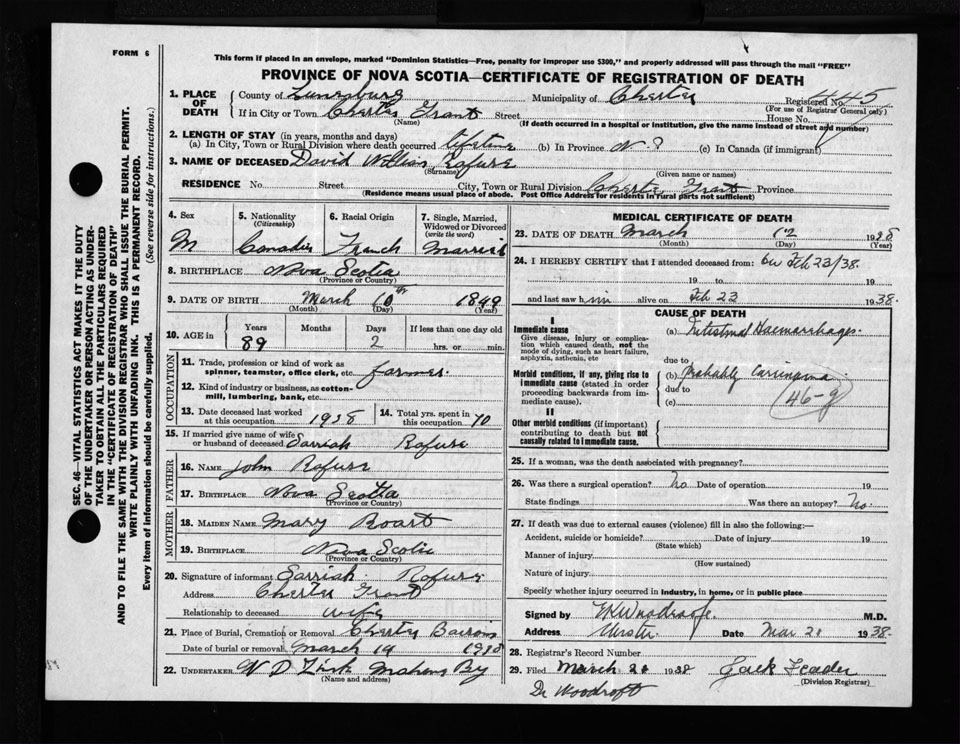 FORM 6
This form if placed in an envelope, marked "Dominion Statistics—Free, penalty for improper use $300," and properly addressed will pass through the mail "FREE"
PROVINCE OF NOVA SCOTIA—CERTIFICATE OF REGISTRATION OF DEATH
SEC. 46—VITAL STATISTICS ACT MAKES IT THE DUTY
OF THE UNDERTAKER OR PERSON ACTING AS UNDER-
TAKER TO OBTAIN ALL THE PARTICULARS REQUIRED
IN THE "CERTIFICATE OF REGISTRATION OF DEATH"
AND TO FILE THE SAME WITH THE DIVISION REGISTRAR WHO SHALL ISSUE THE BURIAL PERMIT.
WRITE PLAINLY WITH UNFADING INK. THIS IS A PERMANENT RECORD.
Every item of information should be carefully supplied. (See reverse side for instructions.)
1. PLACE OF DEATH County of Lunenburg Municipality of Chester Registered No. 445
(For use of Registrar General only)
If in City or Town Chester Grant Street House No.
(Name) (If death occurred in a hospital or institution, give the name instead of street and number)
2. LENGTH OF STAY (in years, months and days)
(a) In City, Town or Rural Division where death occurred lifetime (b) In Province N. S (c) In Canada (if immigrant)
3. NAME OF DECEASED David William Rafuse
(Surname) (Given name or names)
RESIDENCE No. Street City, Town or Rural Division Chester Grant Province
(Residence means usual place of abode. Post Office Address for residents in Rural parts not sufficient)
4. Sex M
5. Nationality (Citizenship) Canadien
6. Racial Origin French
7. Single, Married, Widowed or Divorced (write the word) Married
8. BIRTHPLACE Nova Scotia
(Province or Country)
9. DATE OF BIRTH March 10th 1849
(Month) (Day) (Year)
10. AGE in Years 89 Months Days 2 If less than one day old hrs. or min.
OCCUPATION
11. Trade, profession or kind of work as spinner, teamster, office clerk, etc. farmer
12. Kind of industry or business, as cotton-mill, lumbering, bank, etc.
13. Date deceased last worked at this occupation 1938
14. Total yrs. spent in this occupation 70
15. If married give name of wife or husband of deceased Sarriah Rafuse
FATHER
16. NAME John Rafuse
17. BIRTHPLACE Nova Scotia
(Province or Country)
MOTHER
18. MAIDEN NAME Mary
19. BIRTHPLACE Nova Scotia
(Province or Country)
20. Signature of informant Sarriah Rafuse
Address Chester Grant
Relationship to deceased wife
21. Place of Burial, Cremation or Removal Chester
Date of burial or removal March 14 1938
22. UNDERTAKER W D Zink Mahone Bay
(Name and address)
MEDICAL CERTIFICATE OF DEATH
23. DATE OF DEATH March 12 1938
(Month) (Day) (Year)
24. I HEREBY CERTIFY that I attended deceased from: on Feb 23/38.
19 to 19
and last saw him alive on Feb 23 1938.
CAUSE OF DEATH
I
Immediate cause
Give disease, injury or complication which caused death, not the mode of dying, such as heart failure, asphyxia, asthenia, etc
(a) Intestinal Haemorrhages
due to
Morbid conditions, if any, giving rise to immediate cause (stated in order proceeding backwards from immediate cause).
(b) Probably Carcinoma
due to
(c)
46-g
II
Other morbid conditions (if important) contributing to death but not causally related to immediate cause.
25. If a woman, was the death associated with pregnancy?
26. Was there a surgical operation? No Date of operation 19
State findings Was there an autopsy? No.
27. If death was due to external causes (violence) fill in also the following:—
Accident, suicide or homicide? Date of injury 19
(State which)
Manner of injury
(How sustained)
Nature of injury
Specify whether injury occurred in industry, in home, or in public place
Signed by M.D.
Address Date Mar 21 1938.
28. Registrar's Record Number
29. Filed March 21 1938 Jack
(Division Registrar)
Dr Woodroft